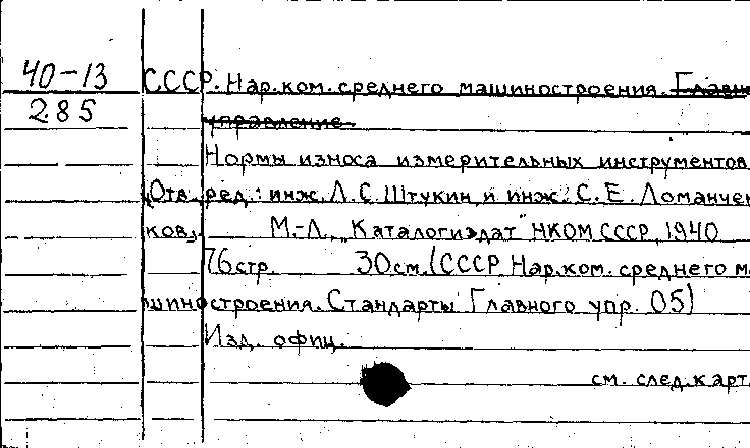 40-13 СССР. Нар.ком.среднего машиностроения. Главн
285
управление.
Нормы износа измерительных инструментов
Отв. ред.: инж. Л. С. Штукин и инж. С. Е. Ломанчен
ков. М.-Л., "Каталогиздат" НКОМ СССР, 1940
76 стр. 30 см. (СССР Нар.ком. среднего м
шиностроения. Стандарты Главного упр. 05)
Изд. офиц.
см. след. карт.